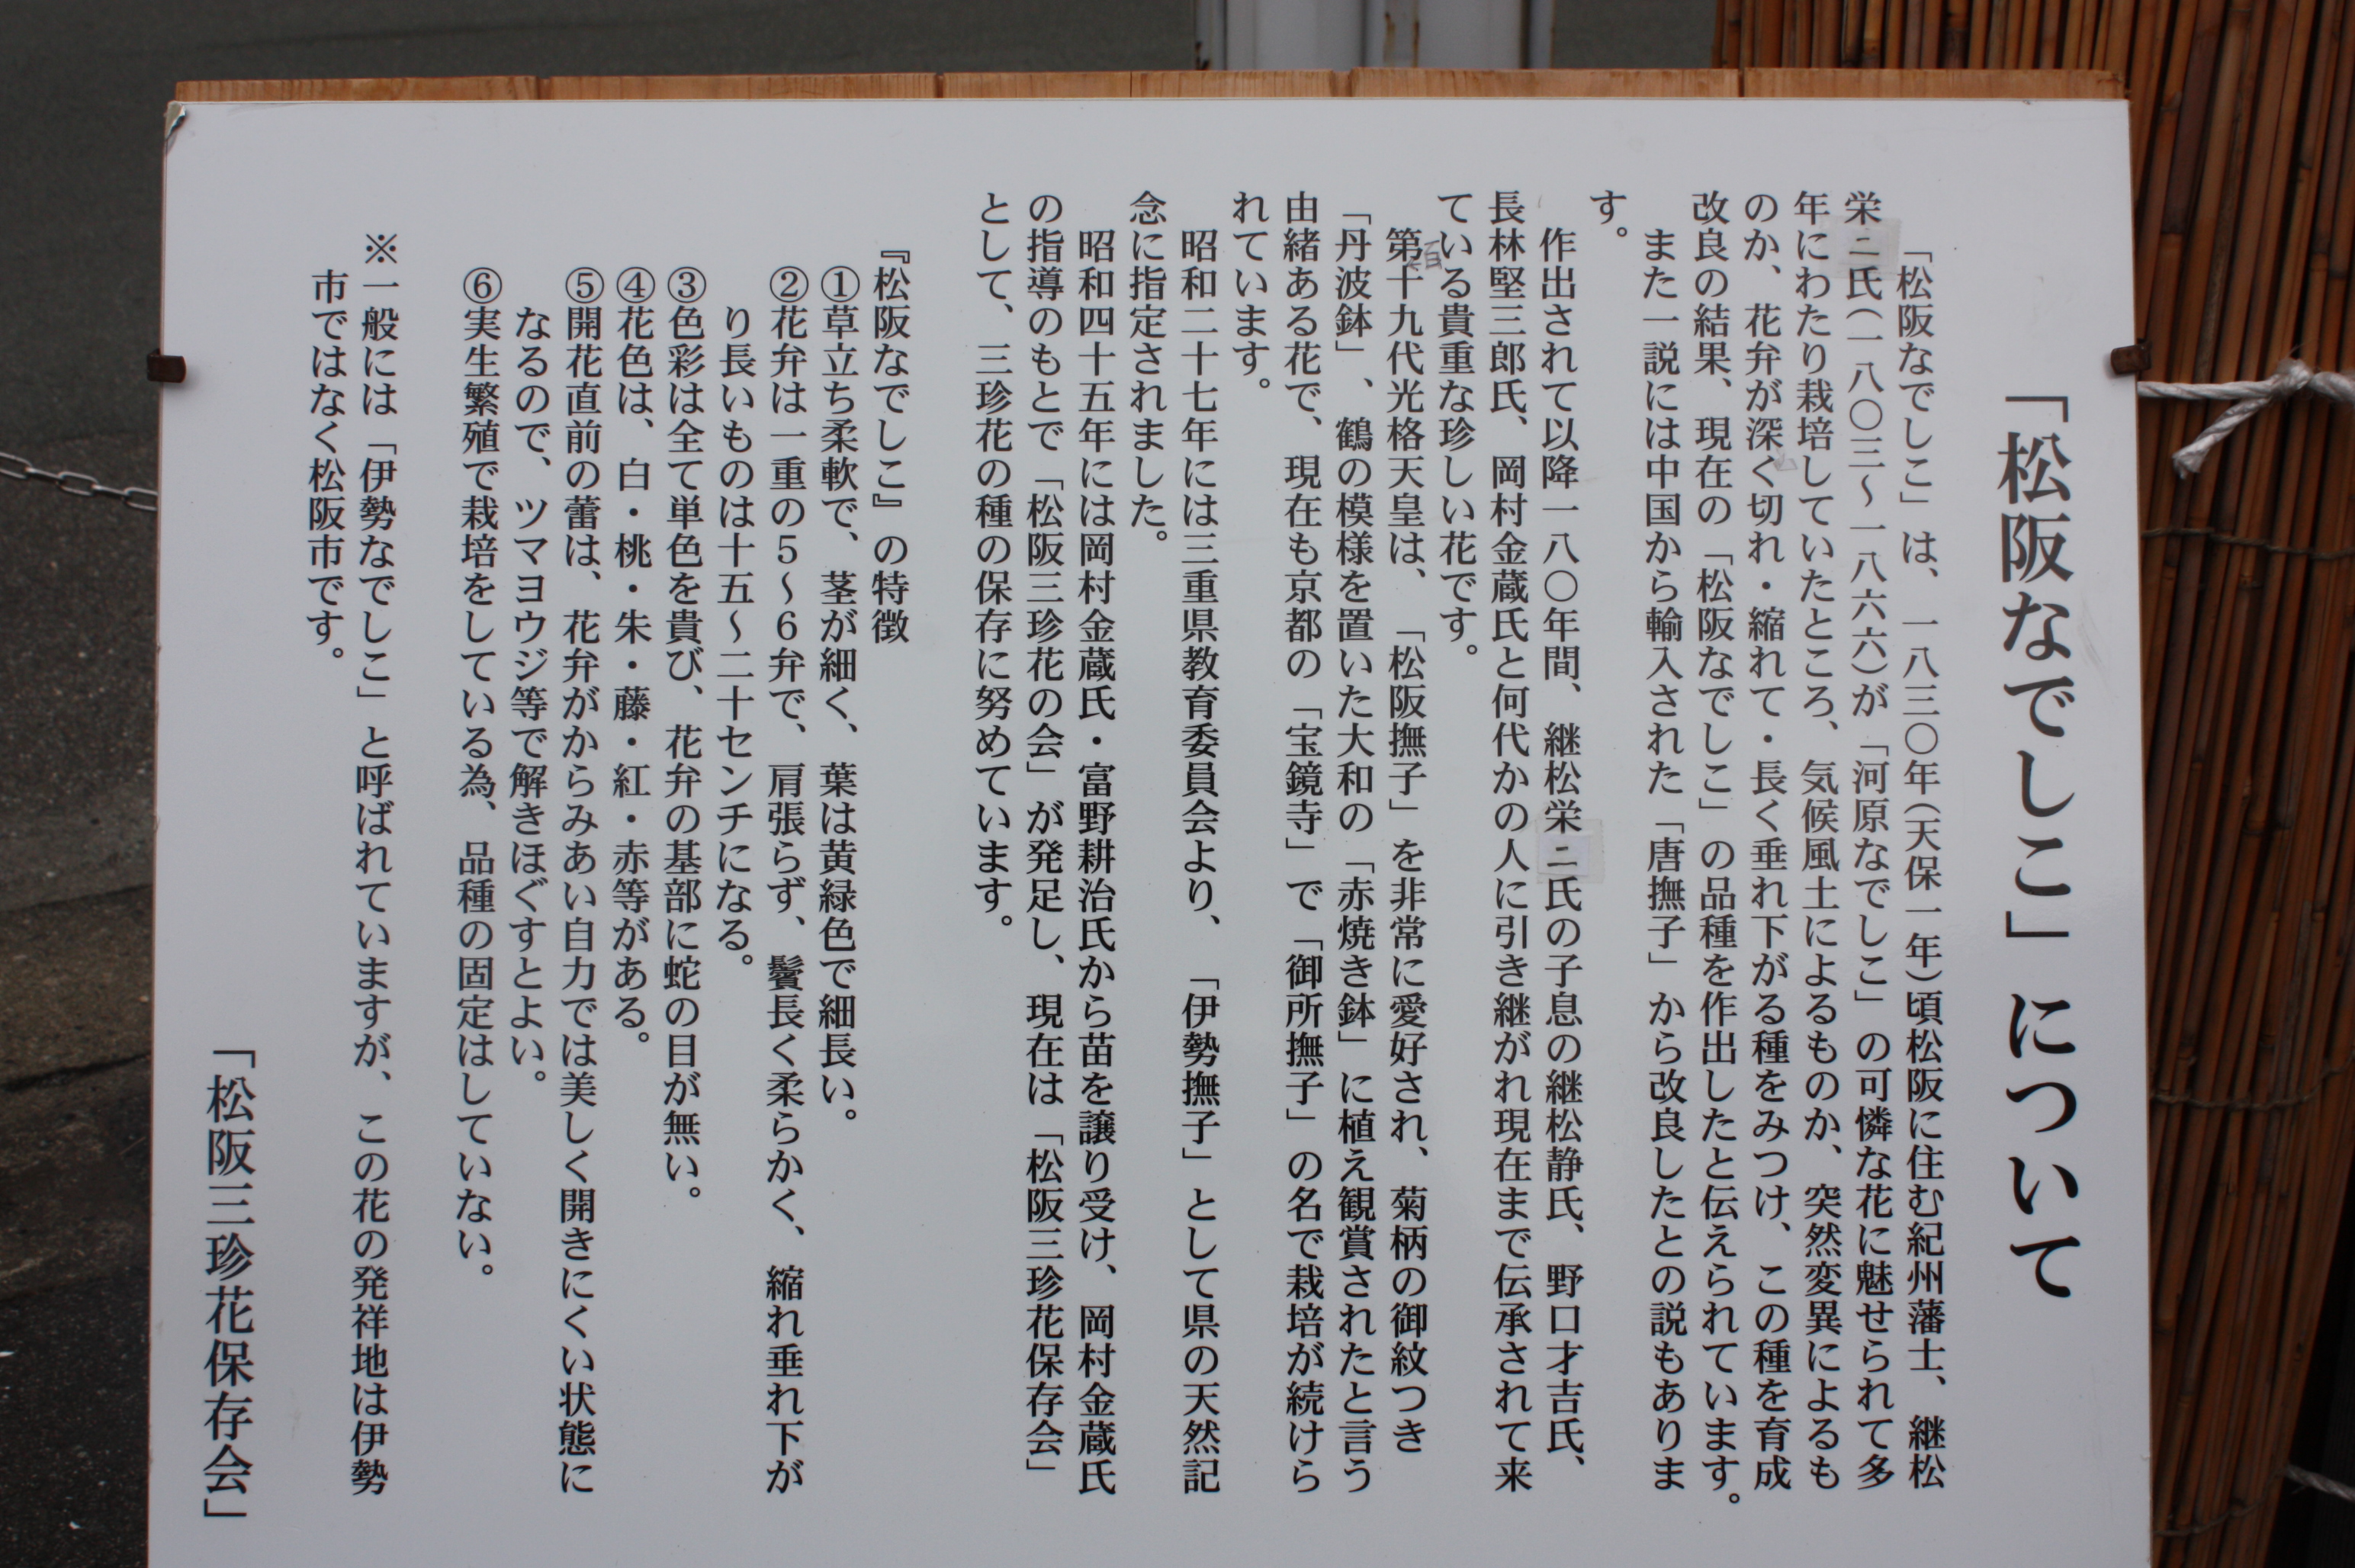 「松阪なでしこ」について
「松阪なでしこ」は、一八三〇年(天保一年)頃松阪に住む紀州藩士、継松
栄二氏(一八〇三～一八六六)が「河原なでしこ」の可憐な花に魅せられて多
年にわたり栽培していたところ、気候風土によるものか、突然変異によるも
のか、花弁が深く切れ・縮れて・長く垂れ下がる種をみつけ、この種を育成
改良の結果、現在の「松阪なでしこ」の品種を作出したと伝えられています。
また一説には中国から輸入された「唐撫子」から改良したとの説もありま
す。
作出されて以降一八〇年間、継松栄二氏の子息の継松静氏、野口才吉氏、
長林堅三郎氏、岡村金蔵氏と何代かの人に引き継がれ現在まで伝承されて来
ている貴重な珍しい花です。
第百十九代光格天皇は、「松阪撫子」を非常に愛好され、菊柄の御紋つき
「丹波鉢」、鶴の模様を置いた大和の「赤焼き鉢」に植え観賞されたと言う
由緒ある花で、現在も京都の「宝鏡寺」で「御所撫子」の名で栽培が続けら
れています。
昭和二十七年には三重県教育委員会より、「伊勢撫子」として県の天然記
念に指定されました。
昭和四十五年には岡村金蔵氏・富野耕治氏から苗を譲り受け、岡村金蔵氏
の指導のもとで「松阪三珍花の会」が発足し、現在は「松阪三珍花保存会」
として、三珍花の種の保存に努めています。
『松阪なでしこ』の特徴
①草立ち柔軟で、茎が細く、葉は黄緑色で細長い。
②花弁は一重の5～6弁で、肩張らず、鬢長く柔らかく、縮れ垂れ下が
り長いものは十五～二十センチになる。
③色彩は全て単色を貴び、花弁の基部に蛇の目が無い。
④花色は、白・桃・朱・藤・紅・赤等がある。
⑤開花直前の蕾は、花弁がからみあい自力では美しく開きにくい状態に
なるので、ツマヨウジ等で解きほぐすとよい。
⑥実生繁殖で栽培をしている為、品種の固定はしていない。
※一般には「伊勢なでしこ」と呼ばれていますが、この花の発祥地は伊勢
市ではなく松阪市です。
「松阪三珍花保存会」